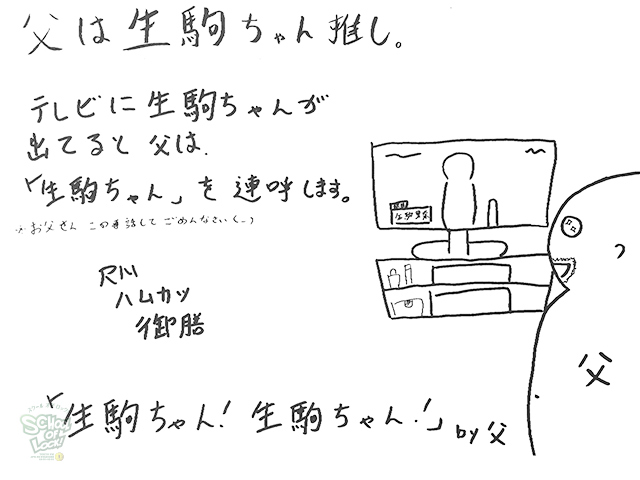 父は生駒ちゃん推し。
テレビに生駒ちゃんが
出てると父は、
「生駒ちゃん」を連呼します。
※お父さん この事話して ごめんなさい(._.)
RN
ハムカツ
御膳
生駒里奈
父
「生駒ちゃん! 生駒ちゃん!」by父
SCHOOL OF LOCK!